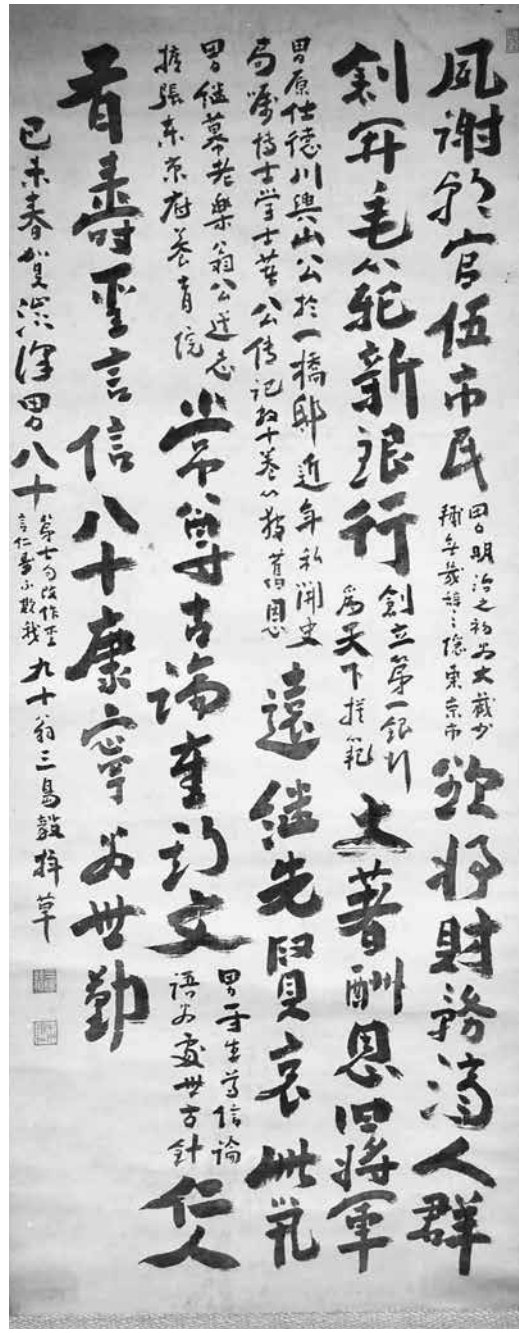 夙謝郎官伍市民 男明治之初為大蔵少輔無幾辞之隠東京市 欲将財務済人群
創開模範新銀行 創立第一銀行為天下模範 史著酬恩旧将軍
男原仕徳川興山公於一橋邸近年私開史局嘱博士学士 公伝記数十巻以報旧恩 遠継先賢哀此茕
男継幕老楽翁公遺志拡張東京府養育院 常尊古論重斯文 男平生尊信論語為処世方針 仁人
者寿聖言信 八十康寧為世勤
己未春賀渋沢男八十 第七句改作聖言仁寿不欺我 九十翁三島毅拝草